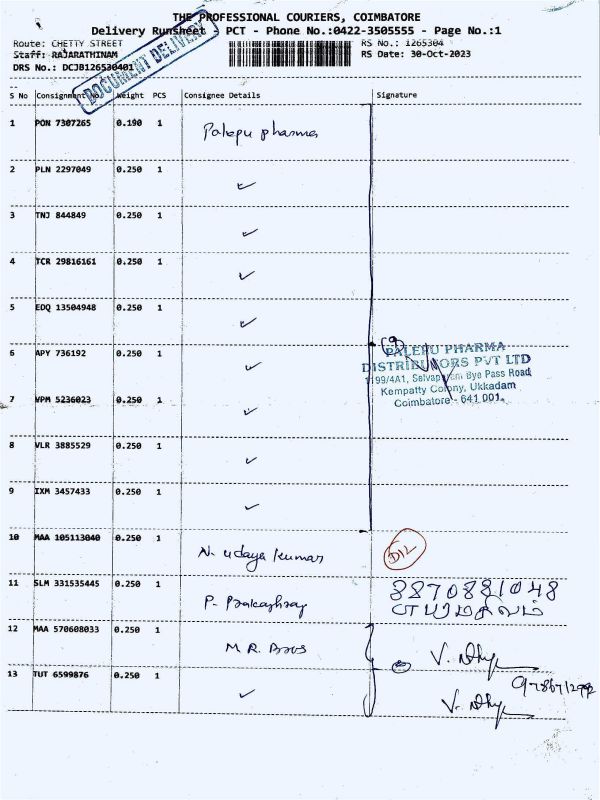 THE PROFESSIONAL COURIERS, COIMBATORE
Delivery Runsheet - PCT - Phone No.:0422-3505555 - Page No.:1
Route: CHETTY STREET
RS No.: 1265304
Staff: RAJARATHINAM
RS Date: 30-Oct-2023
DRS No.: DCJB126530401
DOCUMENT DELIVERY
S No Consignment No Weight PCS Consignee Details Signature
1 PON 7307265 0.190 1 Palepu pharma
2 PLN 2297049 0.250 1 ✓
3 TNJ 844849 0.250 1 ✓
4 TCR 29816161 0.250 1 ✓
5 EDQ 13504948 0.250 1 ✓
(9)
6 APY 736192 0.250 1 ✓
PALEPU PHARMA
DISTRIBUTORS PVT LTD
1199/4A1, Selvapuram Bye Pass Road
Kempatty Colony, Ukkadam
Coimbatore - 641 001.
7 VPM 5236023 0.250 1 ✓
8 VLR 3885529 0.250 1 ✓
9 IXM 3457433 0.250 1 ✓
10 MAA 105113040 0.250 1 N. Udaya Kumar
11 SLM 331535445 0.250 1 P. Prakashraj 8870881048
12 MAA 570608033 0.250 1 M R. Bros
13 TUT 6599876 0.250 1 ✓